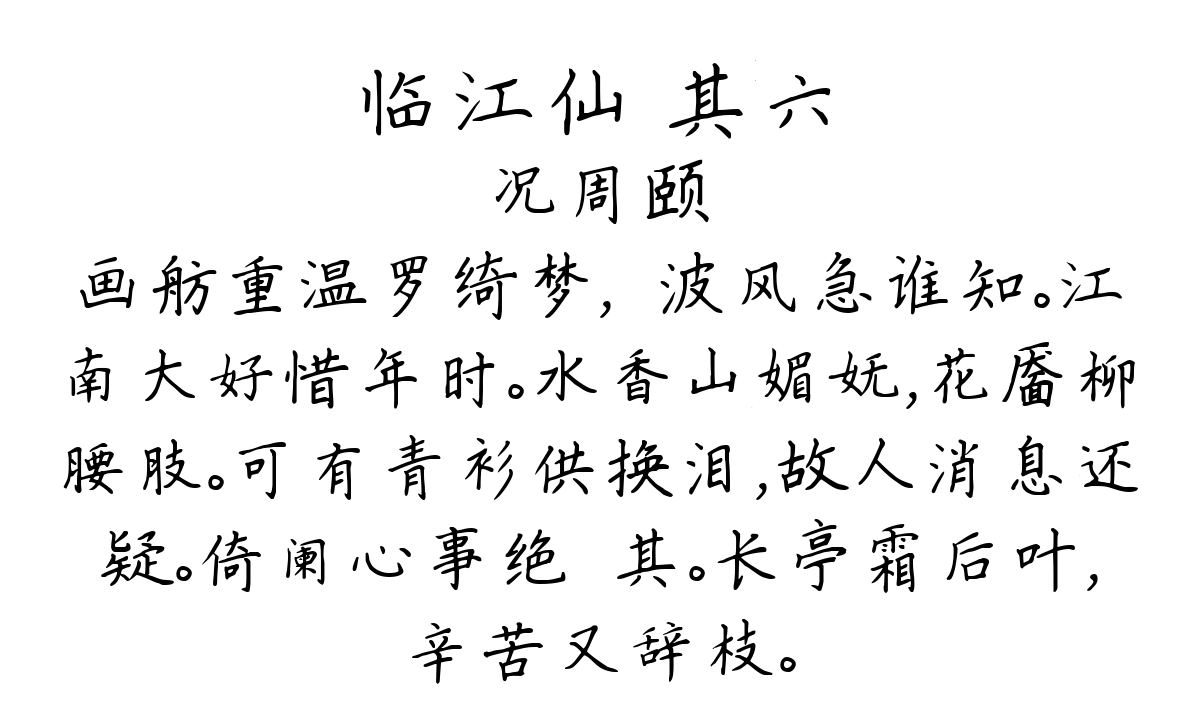 临江仙 其六
况周颐
画舫重温罗绮梦，波风急谁知。江
南大好惜年时。水香山媚妩，花靥柳
腰肢。可有青衫供换泪，故人消息还
疑。倚阑心事绝 其。长亭霜后叶，
辛苦又辞枝。